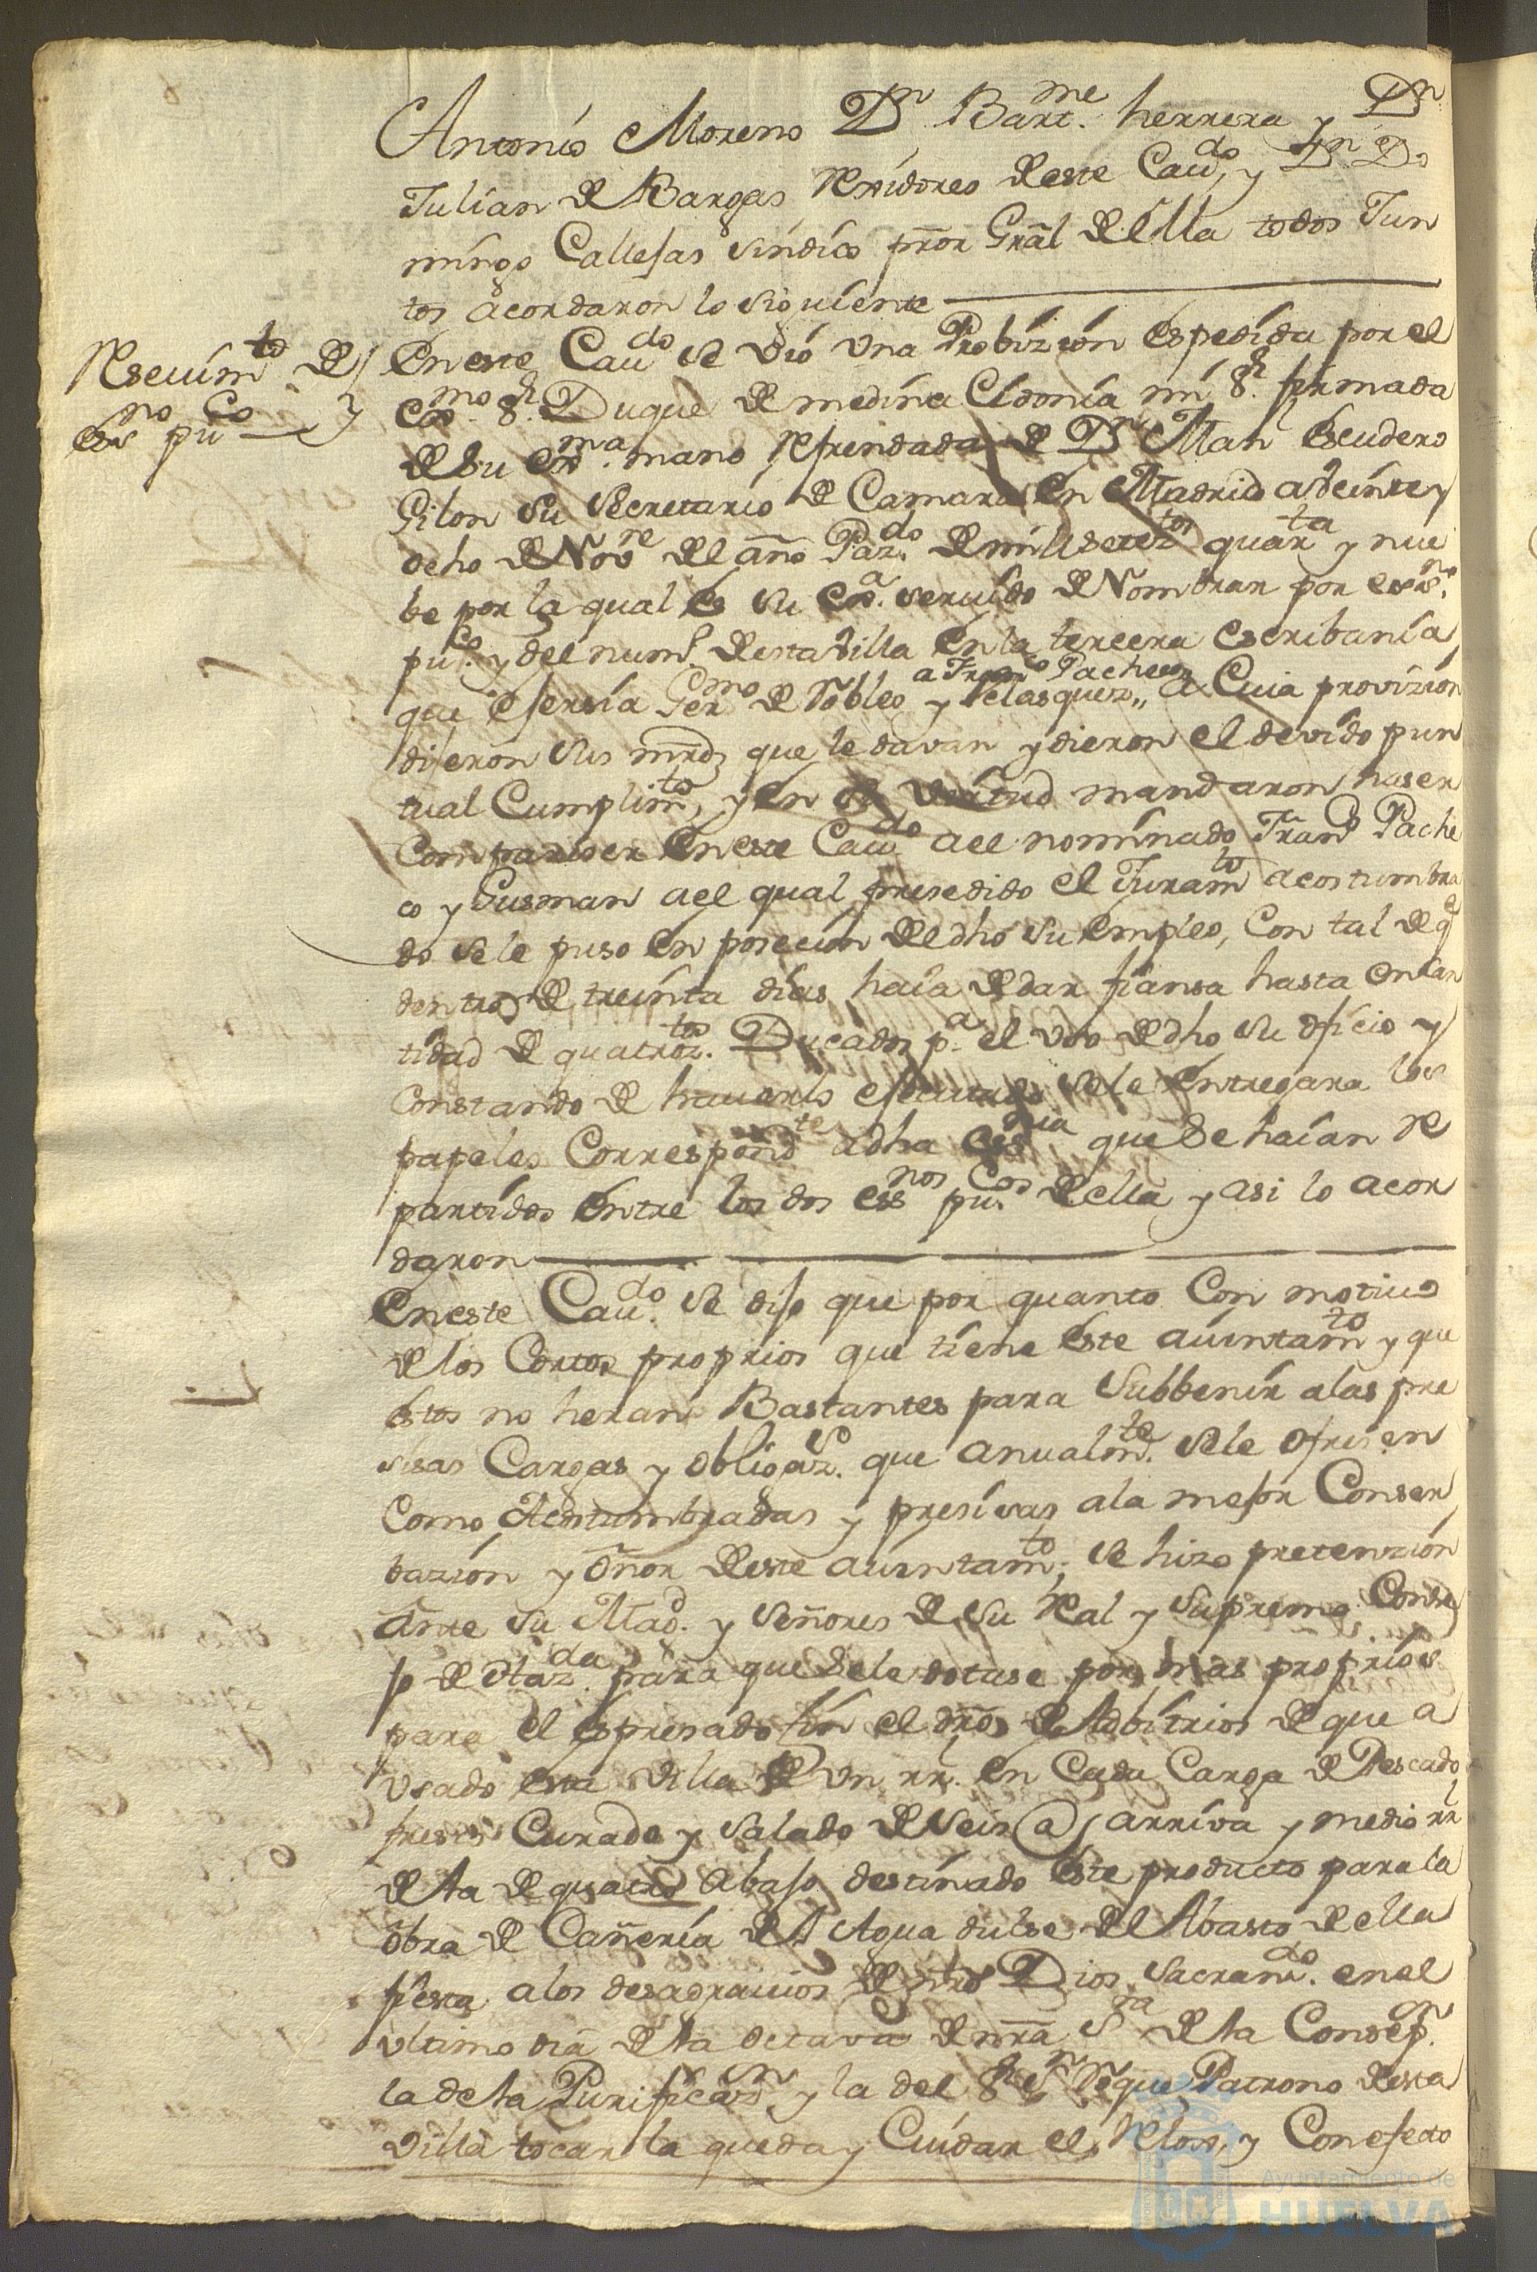 Antonio Moreno Dn Bartme herrera y Dn
Julian de Bargas Rexidores de este Cavdo, y Dn Do
mingo Callejas sindico pror Gral de ella todos Jun
tos acordaron lo siguiente
Resevimto de
essno puco
En este Cavdo se vió una Probizion espedida por el
Exmo Sr Duque de medina Cidonia mi Sr firmada
de su exma mano Refrendada de Dn Manl Escudero
Gilon su Secretario de Camara en Madrid a veinte y
ocho de Nove del año Pazdo de mill seteztos quarta y nue
be por la qual es su exa. servido de Nombrar por essno
puco y del numo de esta villa en la tercera escribania
que esersia Germo de Robles y Velasquez,, a Franco Pacheco a Cuia provizion
dijeron sus mrds que le davan y dieron el devido pun
tual Cumplimto, y en su virtud mandaron haser
Compareser en este Cavdo a el nominado Franco Pache
co y Gusman a el qual presedido el Juramto acostumbra
do se le puso en posecion de el dho su empleo, Con tal de qe
dentro de treinta dias haia de dar fiansa hasta en can
tidad de quatroztos Ducados pa el uso de dho su oficio y
Constando de haverlo esecutado se le entregara los
papeles Correspondtes a dha essnia que se haian Re
partidos entre los dos essnos pucos de ella y asi lo acor
daron
En este Cavdo se dijo que por quanto Con motivo
de los Cortos proprios que tiene este aiuntamto y que
estos no heran Bastantes para Subbenir a las pre
sisas Cargas y obligazs que anualmte se le ofresen
Como Acostumbradas y presisas a la mejor Conser
bazion y onor de este aiuntamto; se hizo pretenzion
Ante su Magd. y Señores de su Real y Supremo Conse
jo de Hazda para que se le dotase por mas proprios
para el espresado fin el dro de Adbitrios de que a
usado esta villa de un rl. en Cada Carga de Pescado
fresco Curado y Salado de seis @s arriva y medio rl
de la de quatro abajo destinado este producto para la
obra de Cañeria de el Agua dulse de el Abasto de ella
fiesta a los desagravios de ntro Dios Sacramdo. en el
ultimo dia de la octava de nra Sra de la Consepn.
la de la Purificazn y la del Sr Sn Roque Patrono de esta
villa tocar la queda y Cuidar el Relox, y Con efecto
Ayuntamiento de
HUELVA